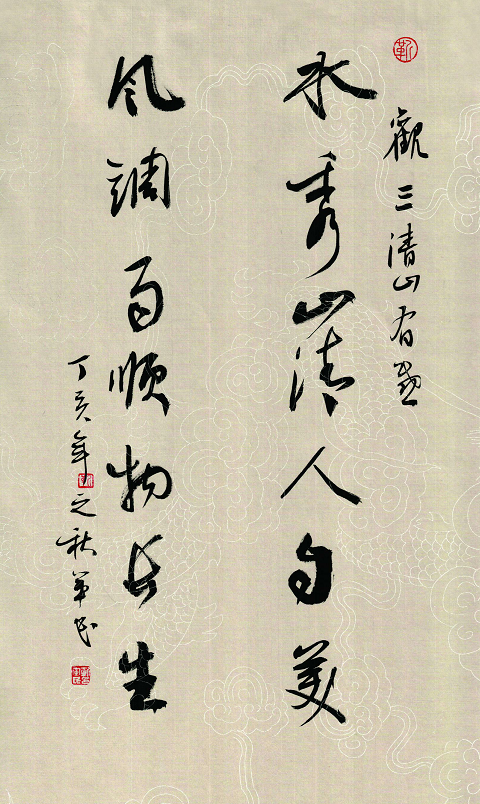 靳
觀三清山有感
水秀山清人自美
风调雨顺物长生
丁亥年之秋